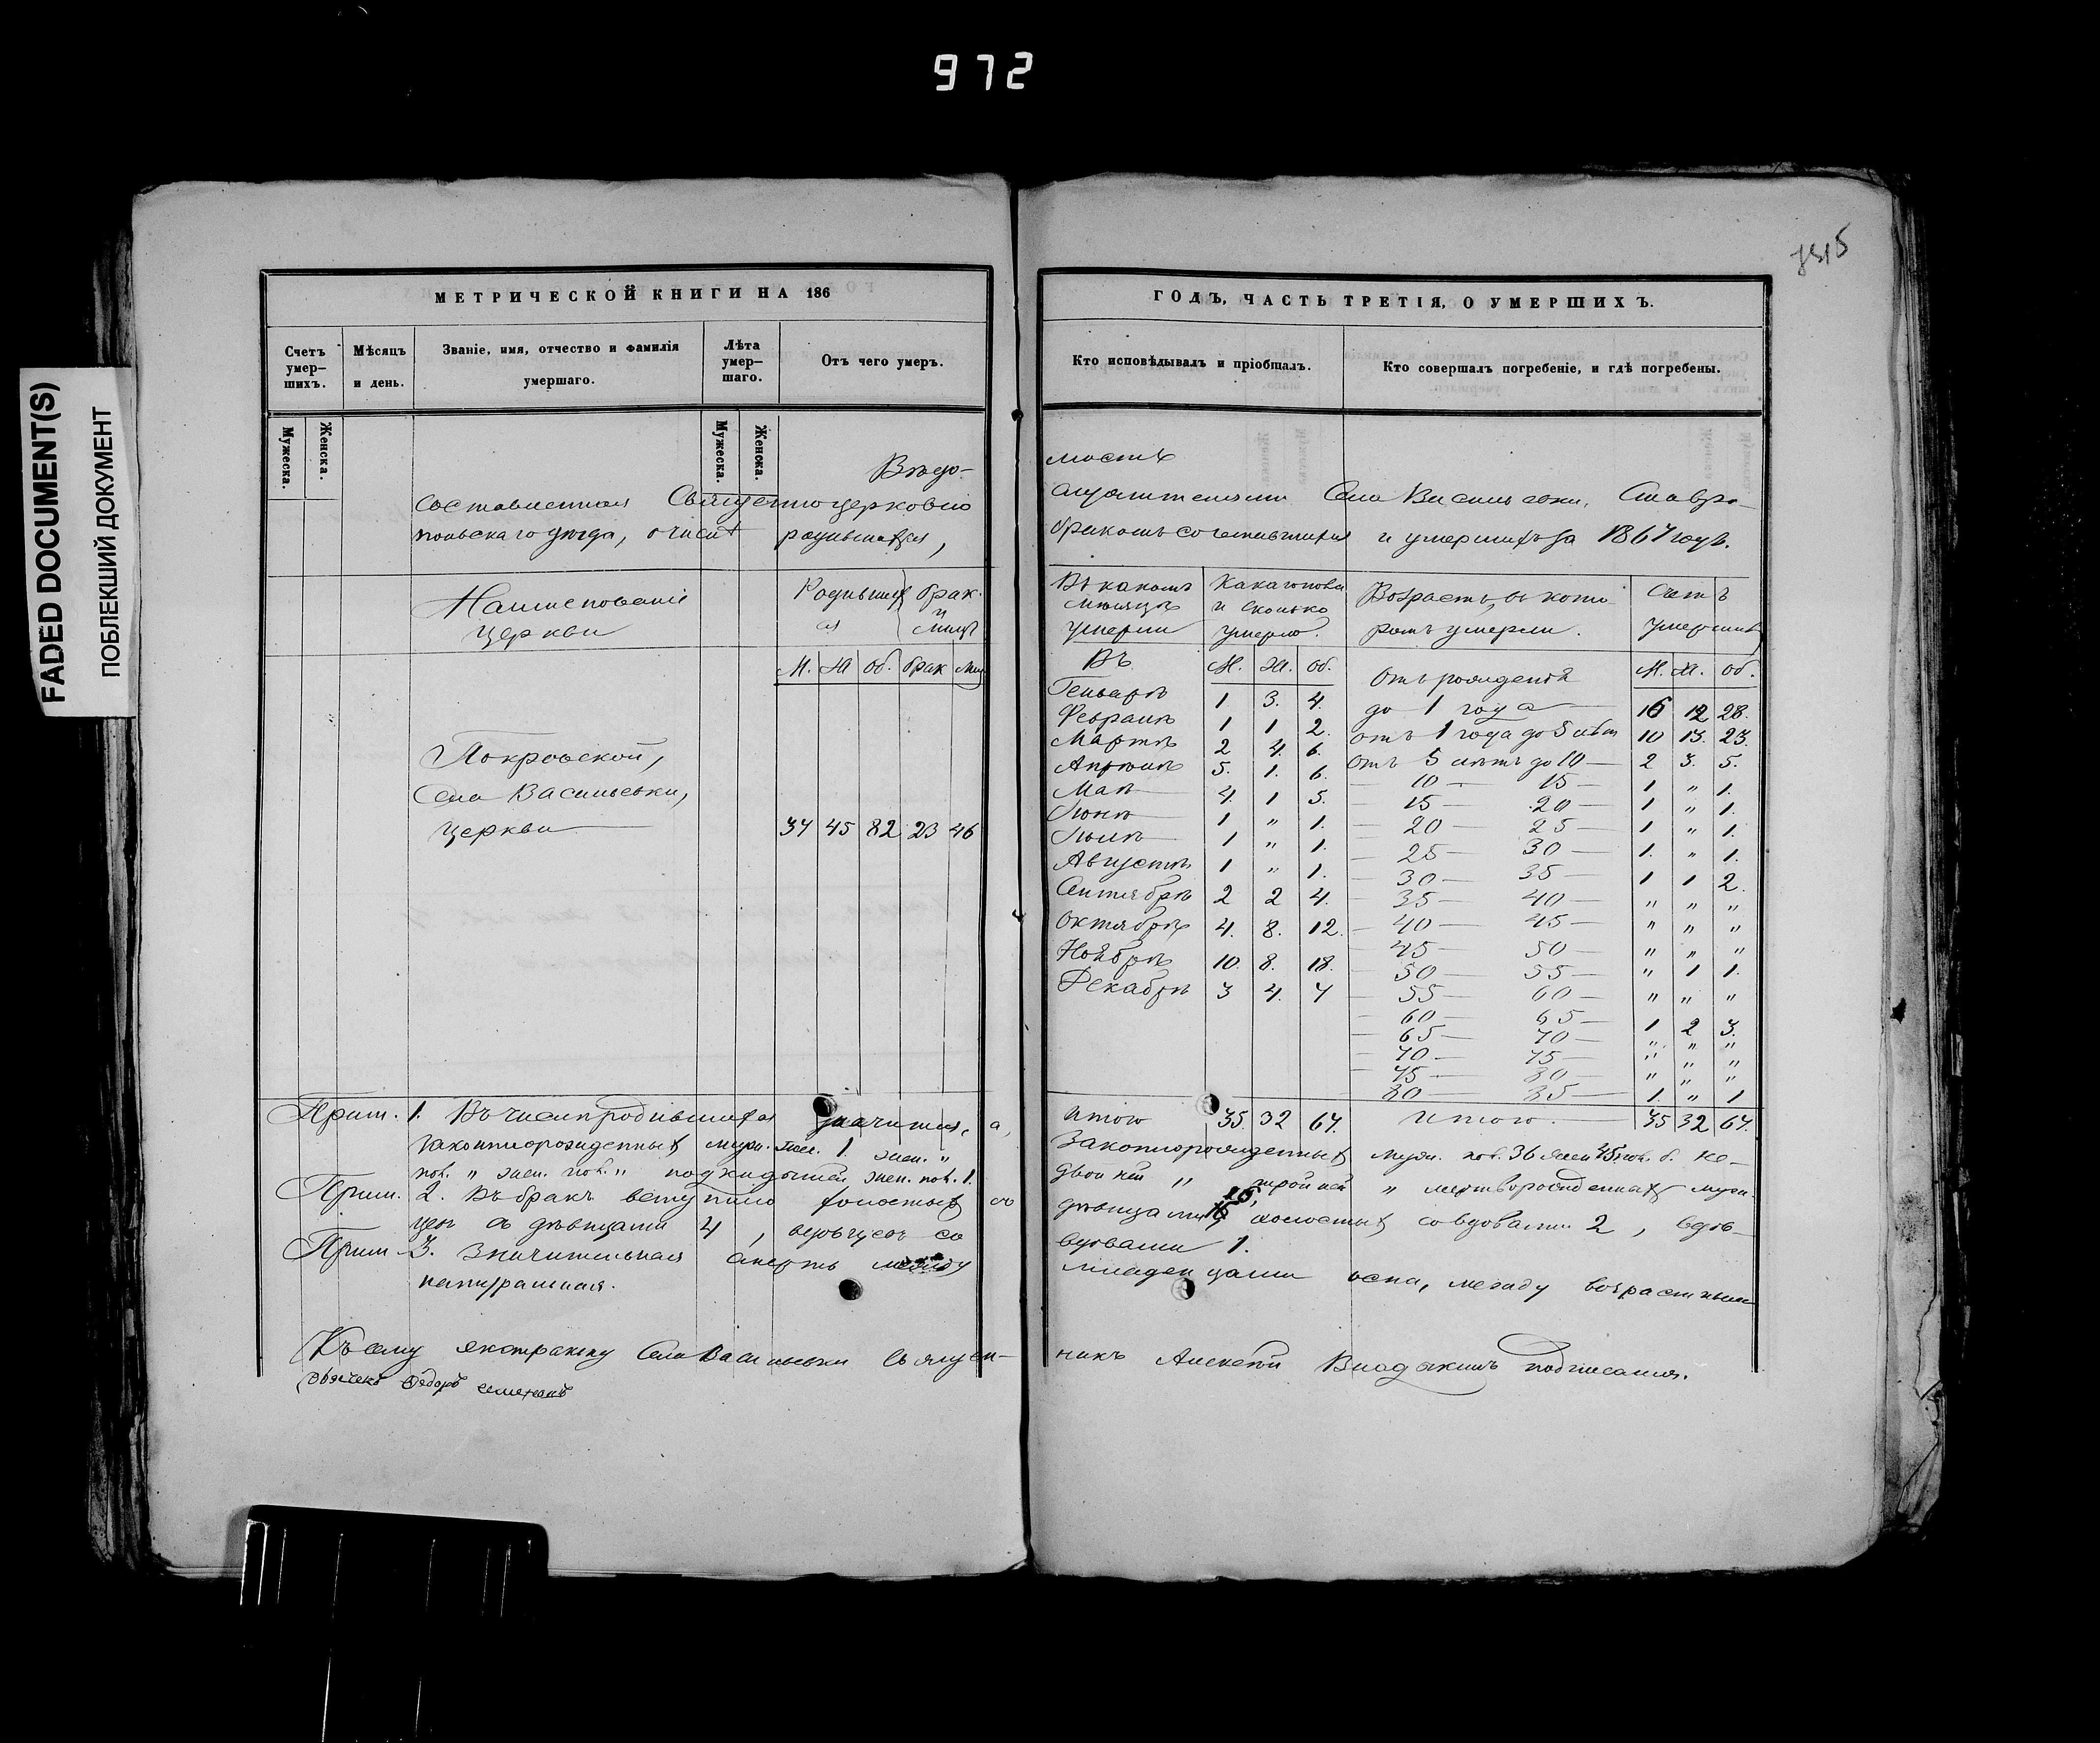 972
FADED DOCUMENT(S)
ПОБЛЕКШИЙ ДОКУМЕНТ
МЕТРИЧЕСКОЙ КНИГИ НА 186
Счетъ умер-
шихъ.
Мѣсяцъ
и день.
Званіе, имя, отчество и фамилія
умершаго.
Лѣта
умер-
шаго.
Отъ чего умеръ.
Мужеска.
Женска.
Мужеска.
Женска.
Вѣдо-
составленная Священноцерковно
польскаго уѣзда, о числѣ родившихся,
Наименованіе
церкви
Родивших
ся
брак.
и
лицъ
М. Ж об. брак лиц
Покровской,
Села Васильевки,
церкви 37 45 82 23 46
Прим. 1. Въ числѣ родившихся значится, а,
незаконнорожденныхъ муж. пол. 1. жен. "
пол. " жен. пол. " подкидышей жен. пол. 1.
Прим. 2. Въ бракъ вступило холостыхъ со
цевъ съ дѣвицами 4, вдовцевъ со
Прим. 3. Значительная смерть между
натуральная.
Къ сему экстракту Села Васильевки Священ-
Дьячекъ Ѳедоръ
ГОДЪ, ЧАСТЬ ТРЕТІЯ, О УМЕРШИХЪ.
Кто исповѣдывалъ и пріобщалъ.
Кто совершалъ погребеніе, и гдѣ погребены.
мость
служителями Села Васильевки, Ставро-
бракомъ сочетавшихся и умершихъ за 1867 годъ.
Въ какомъ
мѣсяцѣ
умерли
Какаго пола
и сколько
умерло.
Возрастъ, въ кото-
ромъ умерли.
Счетъ
умершихъ
Въ М. Ж. об.
Генварѣ 1 3. 4.
Февралѣ 1 1 2.
Мартѣ 2 4. 6.
Апрѣлѣ 5. 1. 6.
Маѣ 4. 1 5.
Іюнѣ 1 " 1.
Іюлѣ 1 " 1.
Августѣ 1 " 1.
Сентябрѣ 2 2 4.
Октябрѣ 4. 8. 12.
Ноябрѣ 10. 8. 18.
Декабрѣ 3 4. 7
Отъ рожденія М. Ж. об.
до 1 года 16 12 28.
отъ 1 года до 5 лѣтъ 10 13. 23.
отъ 5 лѣтъ до 10 — 2 3. 5.
— 10 — 15 — 1 " 1.
— 15 — 20 — 1 " 1.
— 20 — 25 — 1 " 1.
— 25 — 30 — 1. " 1.
— 30 — 35 — 1 1 2.
— 35 — 40 — " " "
— 40 — 45 — " " "
— 45 — 50 — " " "
— 50 — 55 — " 1 1.
— 55 — 60 — " " "
— 60 — 65 — 1 2 3.
— 65 — 70 — " " "
— 70 — 75 — " " "
— 75 — 80 — " " "
80 — 85 — 1 " 1
Итого 35. 32 67. Итого. 35 32 67.
Законнорожденныхъ муж. пол. 36 жен 45 пол. б. не-
двойней " тройней " мертворожденныхъ муж.
дѣвицами 16, холостыхъ со вдовами 2, вдов-
вдовами 1.
младенцами оспа, между возрастными
никъ Алексѣй Владыкинъ подписался.